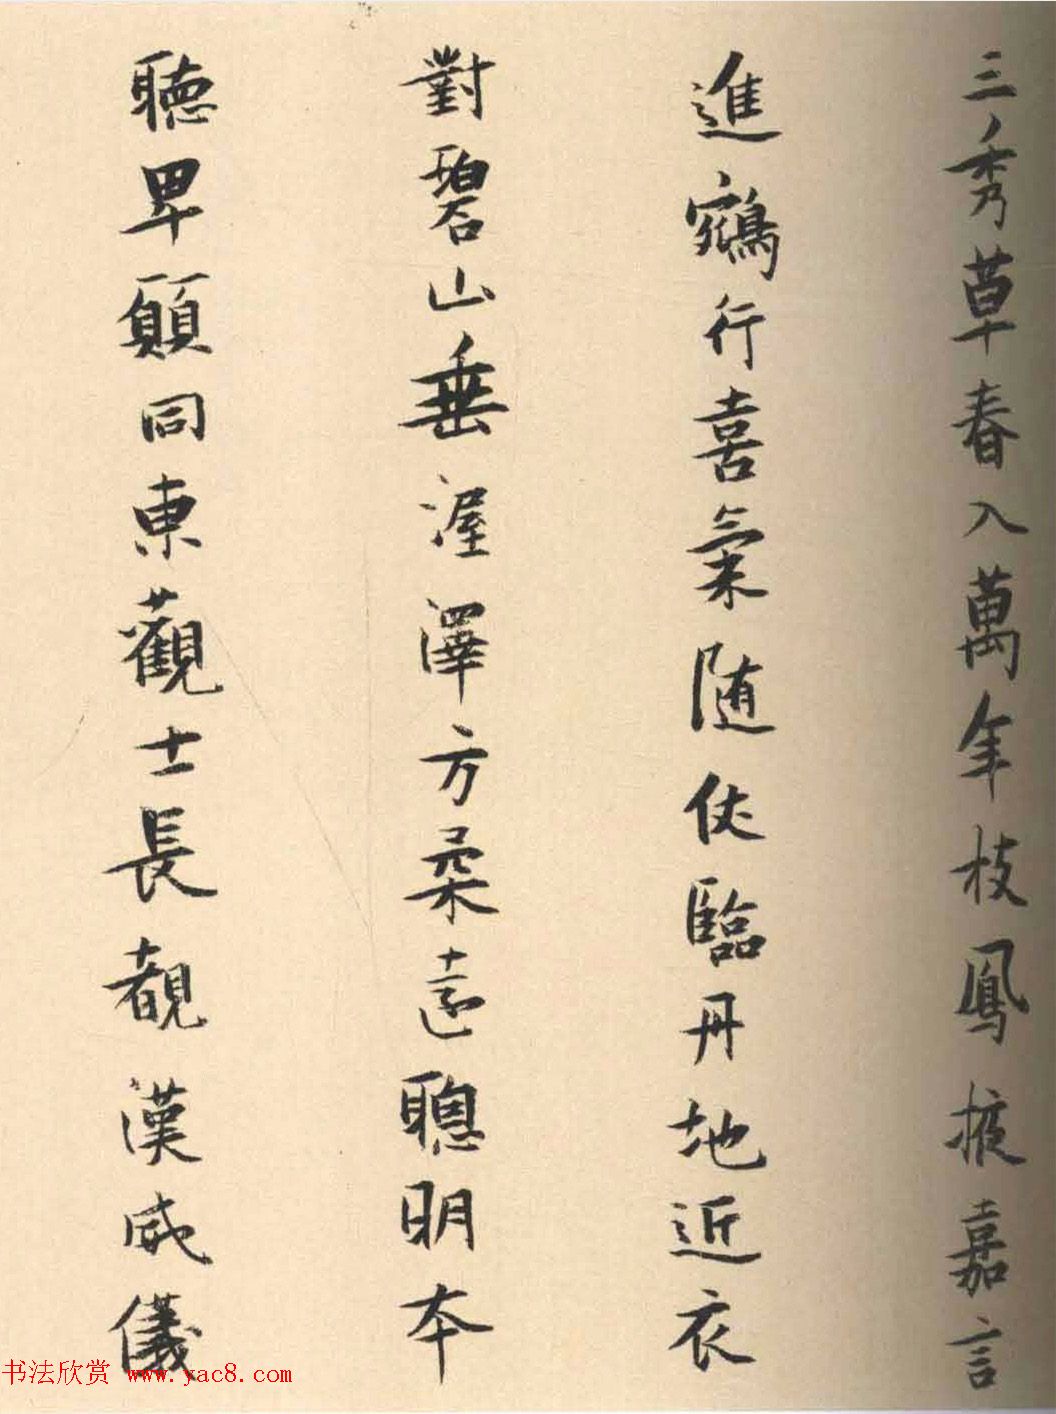 三秀草春入萬年枝鳳掖嘉言
進鵷行喜氣随仗臨丹地近衣
對碧山垂渥澤方柔遠聰明本
聴卑願同東觀士長覩漢威儀
书法欣赏 www.yac8.com